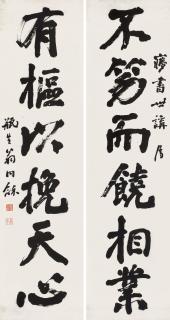 夢書世講屬
不笏而饒相業
有樞以挽天心
瓶生翁同龢